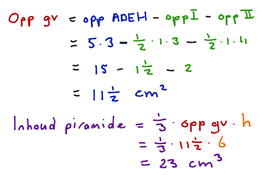 Opp gv = opp ADEH - opp I - opp II
= 5·3 - 1/2·1·3 - 1/2·1·4
= 15 - 1 1/2 - 2
= 11 1/2 cm²
Inhoud piramide = 1/3 · opp gv · h
= 1/3 · 11 1/2 · 6
= 23 cm³